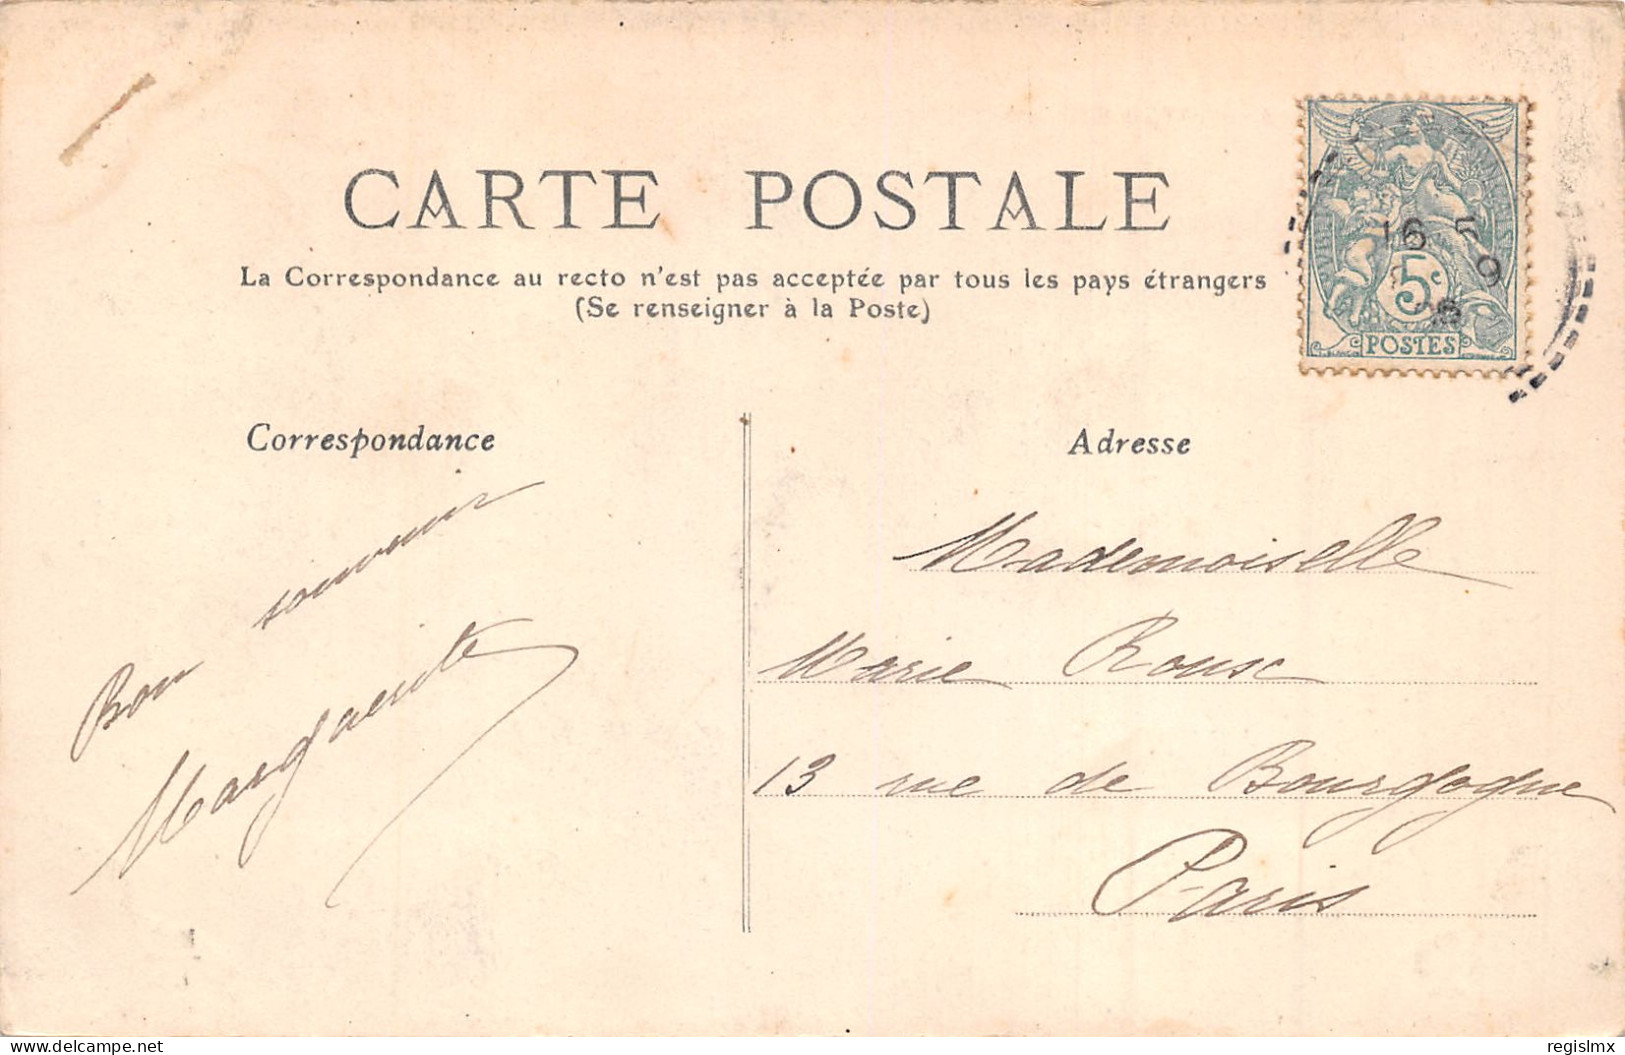 CARTE POSTALE
La Correspondance au recto n'est pas acceptée par tous les pays étrangers
(Se renseigner à la Poste)
16 5
5c
POSTES
Correspondance
Bon souvenir
Marguerite
Adresse
Mademoiselle
Marie Roux
13 rue de Bourgogne
Paris
delcampe.net
regislmx